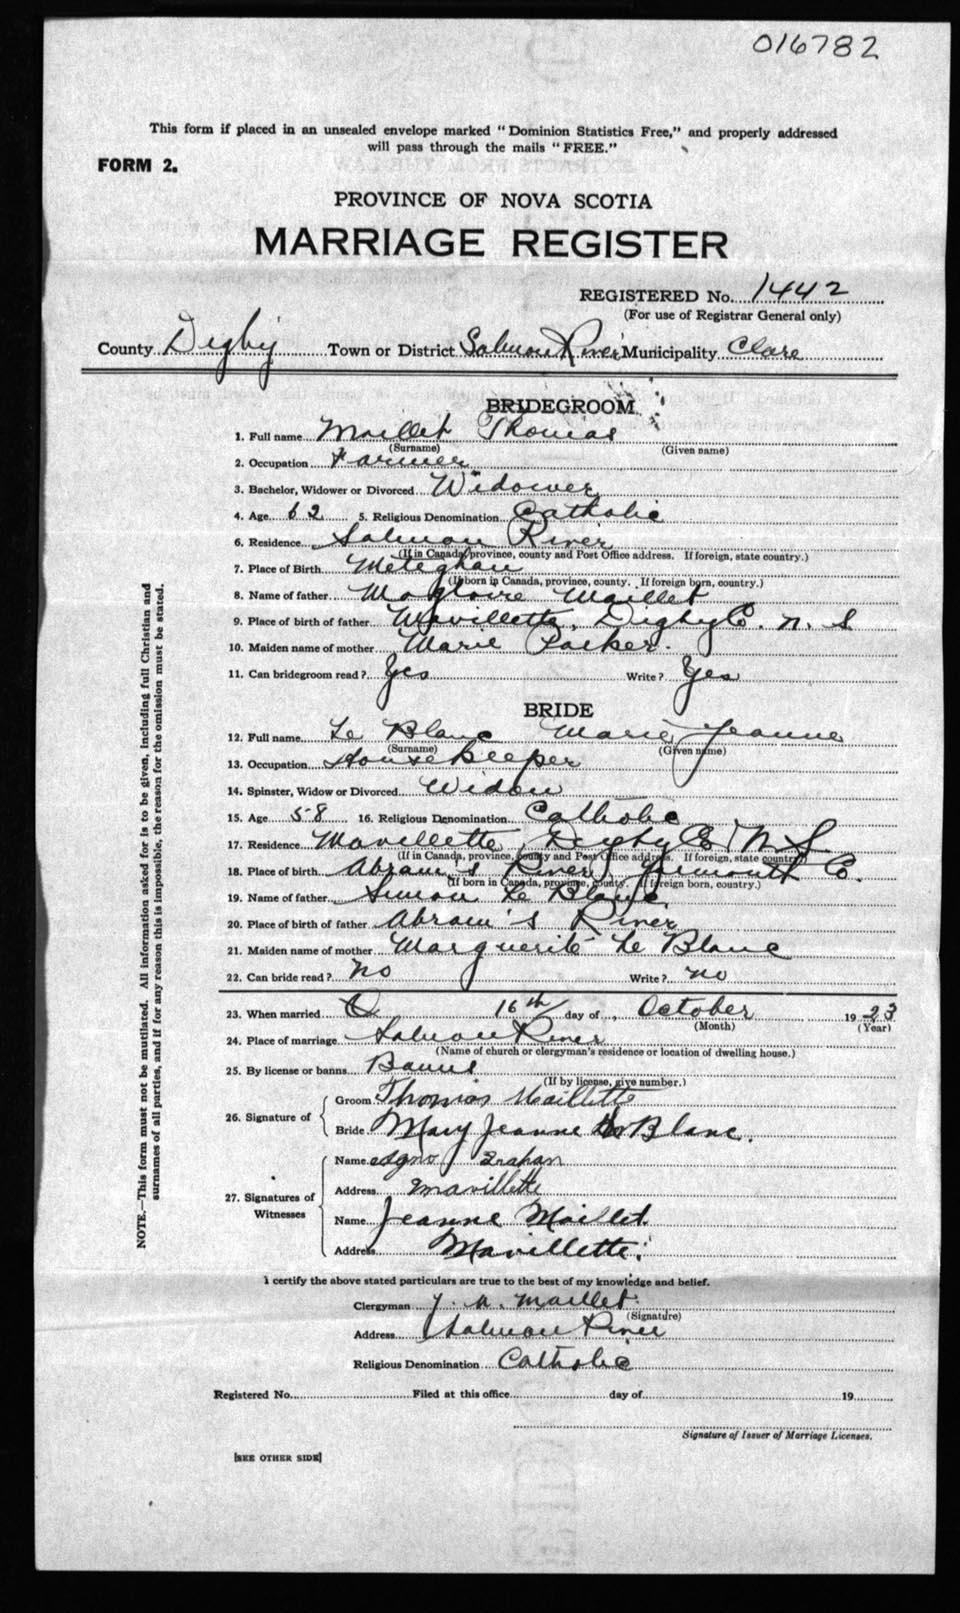 016782
This form if placed in an unsealed envelope marked "Dominion Statistics Free," and properly addressed
will pass through the mails "FREE."
FORM 2.
PROVINCE OF NOVA SCOTIA
MARRIAGE REGISTER
REGISTERED No. 1442
(For use of Registrar General only)
County Digby Town or District Salmon River Municipality Clare
BRIDEGROOM
1. Full name Maillet Thomas
(Surname) (Given name)
2. Occupation Farmer
3. Bachelor, Widower or Divorced Widower
4. Age 62 5. Religious Denomination Catholic
6. Residence Salmon River
(If in Canada, province, county and Post Office address. If foreign, state country.)
7. Place of Birth Meteghan
(If born in Canada, province, county. If foreign born, country.)
8. Name of father Magloire Maillet
9. Place of birth of father Mavillette, Digby Co. N. S
10. Maiden name of mother Marie Parker.
11. Can bridegroom read? Yes Write? Yes
BRIDE
12. Full name Le Blanc Marie Jeanne
(Surname) (Given name)
13. Occupation Housekeeper
14. Spinster, Widow or Divorced Widow
15. Age 58 16. Religious Denomination Catholic
17. Residence Mavillette, Digby Co N S
(If in Canada, province, county and Post Office address. If foreign, state country.)
18. Place of birth Abram's River, Yarmouth Co.
(If born in Canada, province, county. If foreign born, country.)
19. Name of father Simon Le Blanc
20. Place of birth of father Abram's River
21. Maiden name of mother Marguerite Le Blanc
22. Can bride read? No Write? no
23. When married 16th day of October 1923
(Month) (Year)
24. Place of marriage Salmon River
(Name of church or clergyman's residence or location of dwelling house.)
25. By license or banns Banns
(If by license, give number.)
26. Signature of
Groom Thomas Maillette
Bride Mary Jeanne Le Blanc.
27. Signatures of Witnesses
Name
Address Mavillette
Name Jeanne Maillet
Address Mavillette
I certify the above stated particulars are true to the best of my knowledge and belief.
Clergyman Maillet
(Signature)
Address Salmon River
Religious Denomination Catholic
Registered No. Filed at this office day of 19
Signature of Issuer of Marriage Licenses.
[SEE OTHER SIDE]
NOTE.—This form must not be mutilated. All information asked for is to be given, including full Christian and
surnames of all parties, and if for any reason this is impossible, the reason for the omission must be stated.